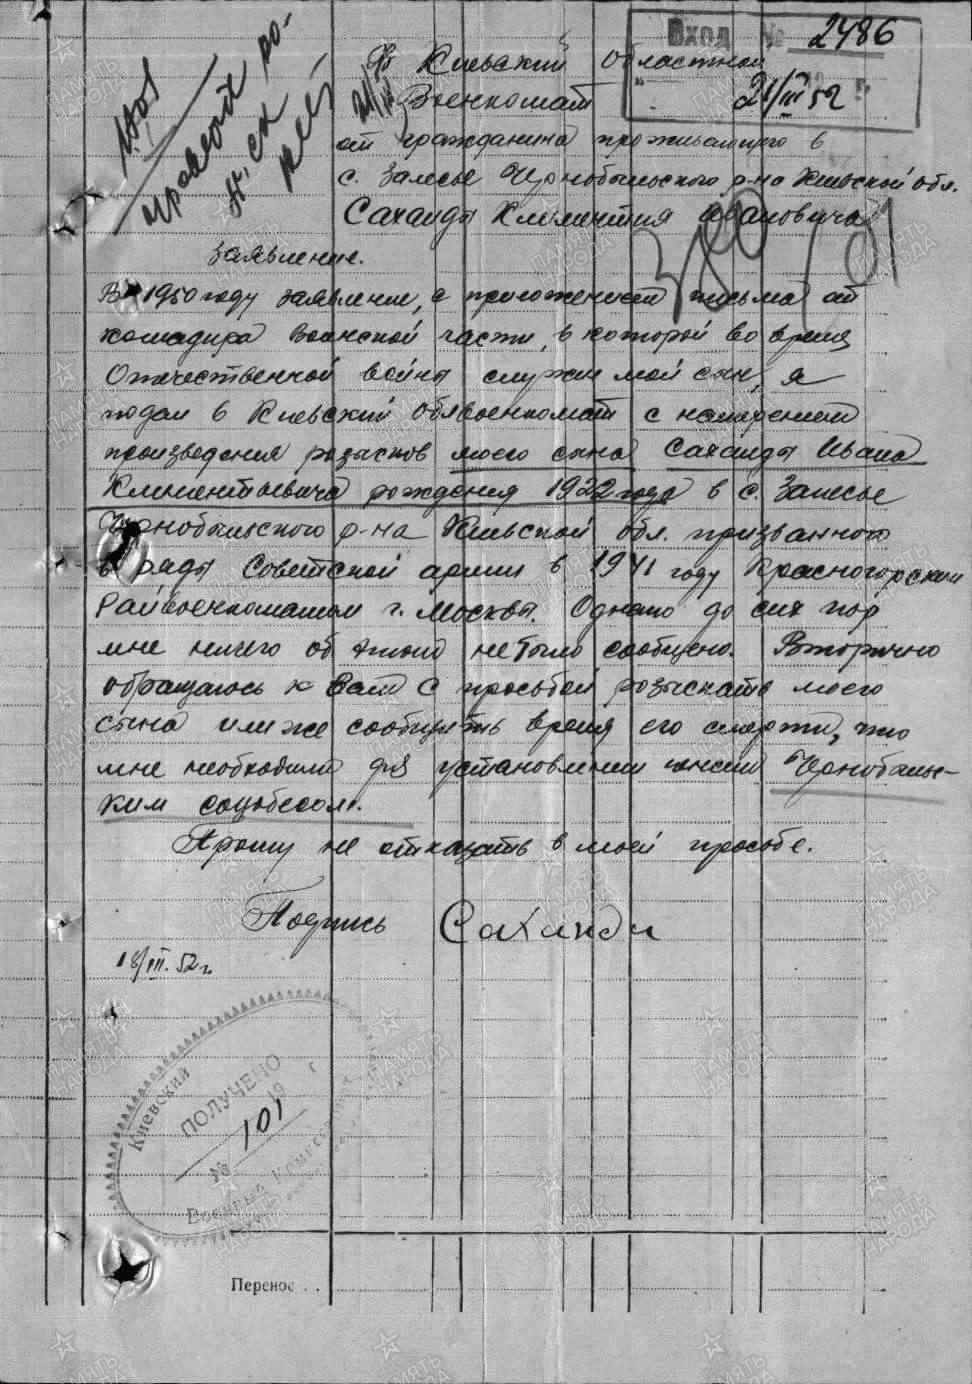 Вход № 2486
21/III 52 г.
В Киевский Областной
Военкомат
от гражданина проживающего в
с. Залесье Чернобыльского р-на Киевской обл.
Саханды Климентия Ивановича
380/101
Заявление.
В 1950 году заявление, с приложением письма от
командира воинской части, в которой во время
Отечественной войны служил мой сын, я
подал в Киевский облвоенкомат с намерением
произведения розысков моего сына Саханды Ивана
Климентьевича рождения 1922 года в с. Залесье
Чернобыльского р-на Киевской обл. призванного
в ряды Советской армии в 1941 году Красногорским
Райвоенкоматом г. Москвы. Однако до сих пор
мне ничего об этом не было сообщено. Вторично
обращаюсь к Вам с просьбой розыскать моего
сына или же сообщить время его смерти, что
мне необходимо для установления пенсии Чернобыльс-
ким соцобесом.
Прошу не отказать в моей просьбе.
Подпись Саханди
18/III. 52 г.
Киевский
ПОЛУЧЕНО
19 г
№ 101
Перенос . .